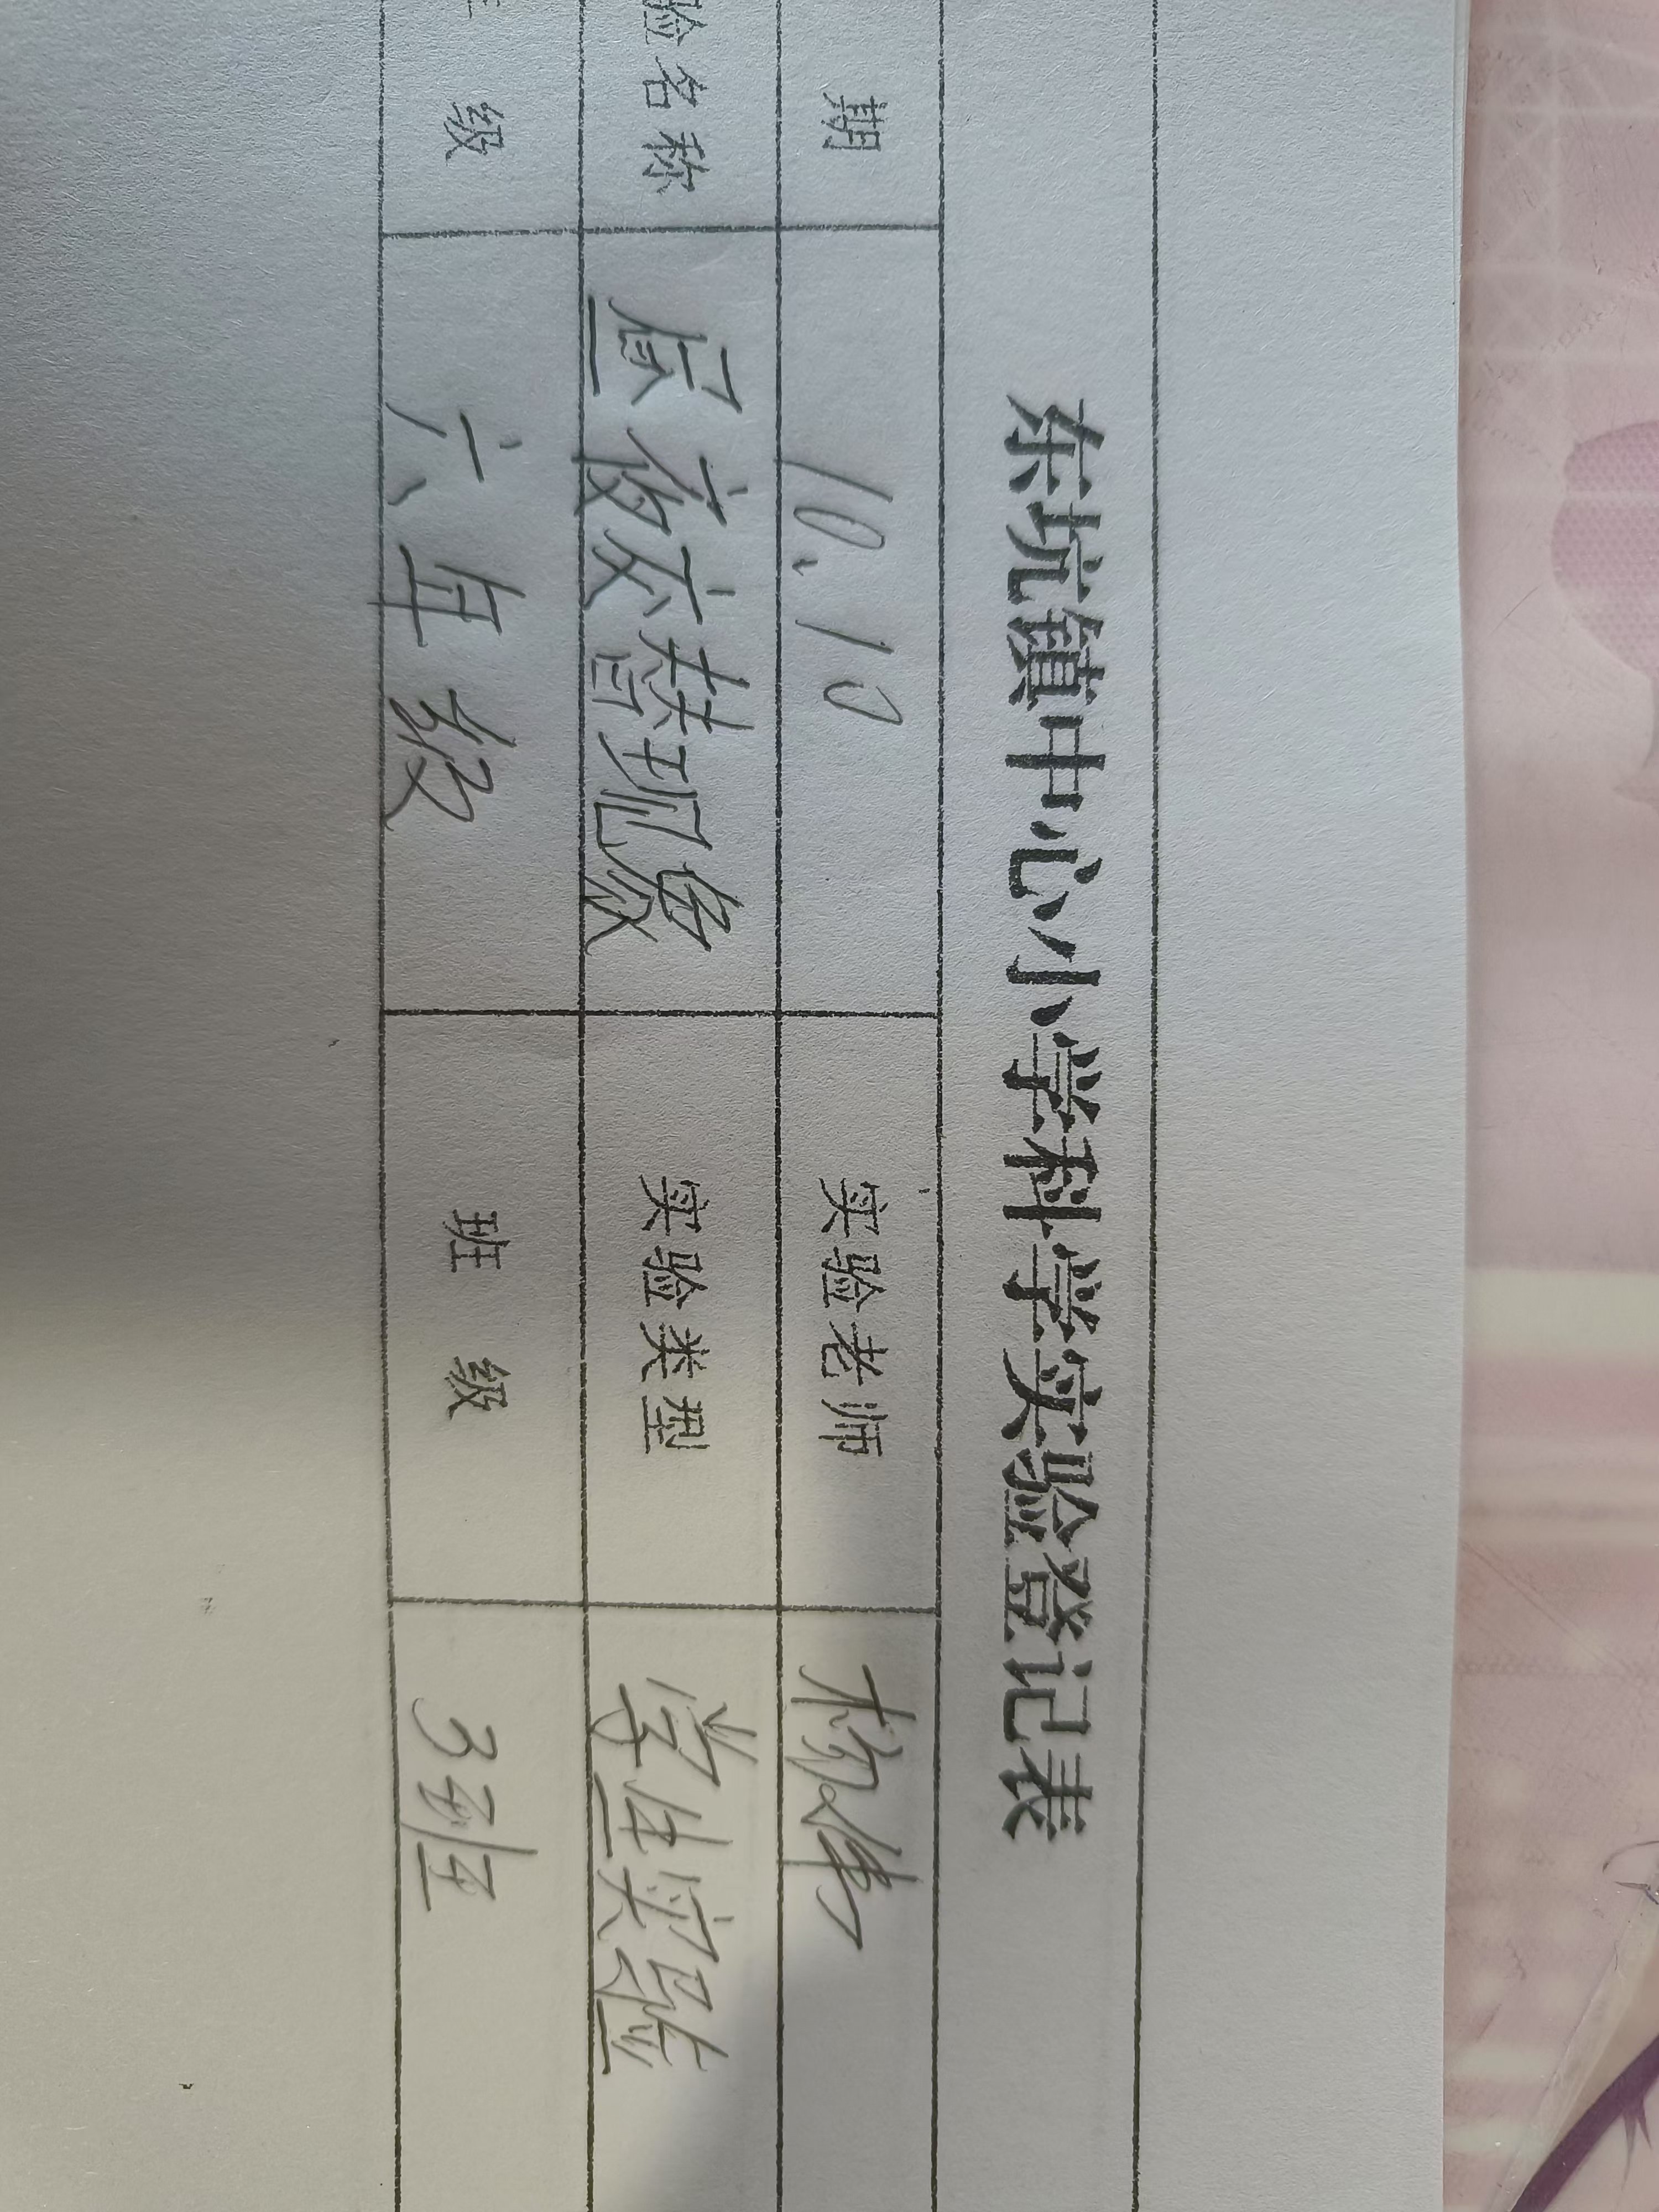 东坑镇中心小学科学实验登记表
期 10.10 实验老师 杨伟
验名称 昼夜交替现象 实验类型 学生实验
级 六年级 班级 3班